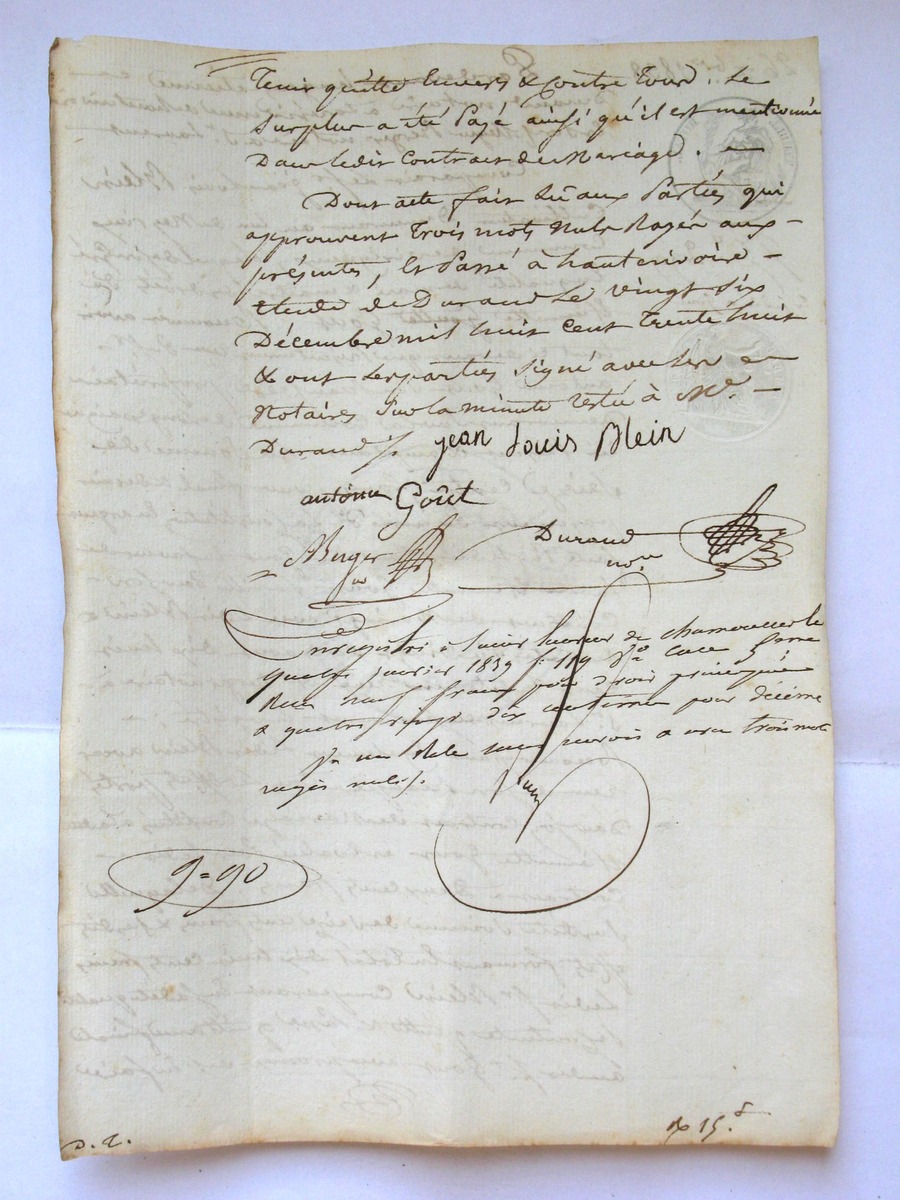 Tenir quitte Envers & Contre Tous. Le
surplus a été Payé ainsi qu'il est mentionné
Dans ledit Contrat de Mariage. —
Dont acte fait Lu aux Parties qui
approuvent Trois mots Nuls Rayés aux
présentes, Et Passé à hauterivoire —
étude de Durand Le vingt Six
Décembre mil huit Cent Trente huit
& ont Les parties Signé avec Les
Notaires Sur la minute restée à Me. —
Durand ./. jean Louis Blein
antoine Goût
Berger Durand
no.re
Enregistré à Saint Laurent de chamousset le
quatre janvier 1839 f. 119 Vo Case
Reçu neuf francs pour droit principal
& quatre vingt dix centimes pour décime
renvois a vu trois mots
rayés nuls ./.
9=90
D. T.
15.